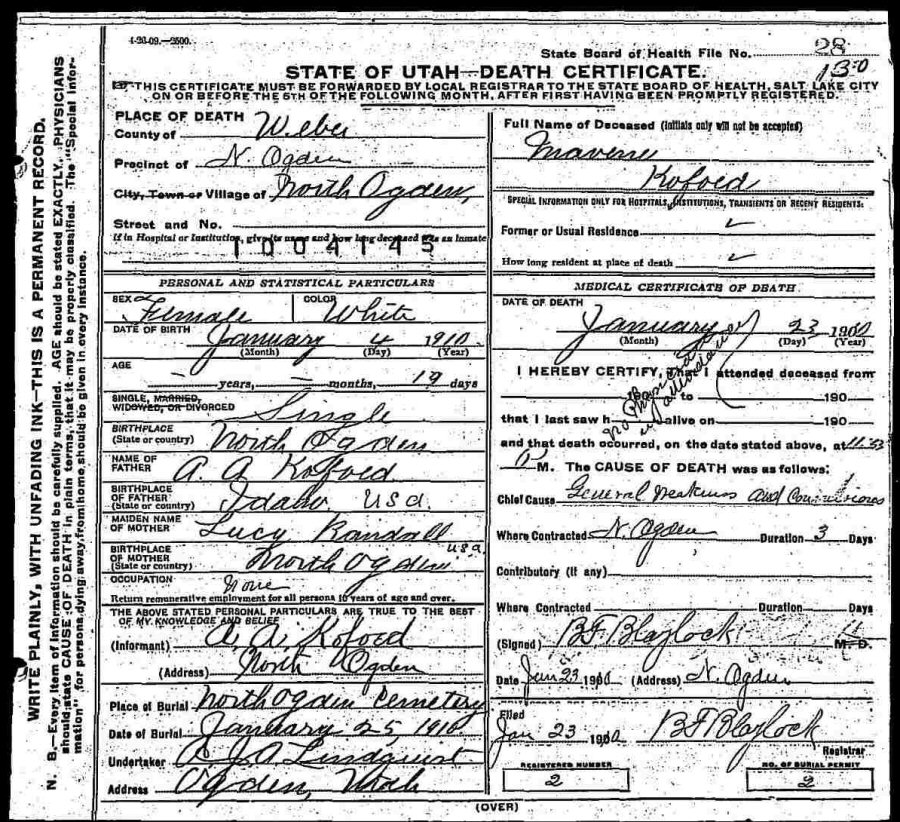 4-26-09.—2500.
State Board of Health File No. 28
1310
STATE OF UTAH—DEATH CERTIFICATE.
THIS CERTIFICATE MUST BE FORWARDED BY LOCAL REGISTRAR TO THE STATE BOARD OF HEALTH, SALT LAKE CITY
ON OR BEFORE THE 5TH OF THE FOLLOWING MONTH, AFTER FIRST HAVING BEEN PROMPTLY REGISTERED.
WRITE PLAINLY, WITH UNFADING INK—THIS IS A PERMANENT RECORD.
N. B.—Every item of information should be carefully supplied. AGE should be stated EXACTLY. PHYSICIANS
should state CAUSE OF DEATH in plain terms, that it may be properly classified. The "Special Infor-
mation" for persons dying away from home should be given in every instance.
PLACE OF DEATH
County of Weber
Precinct of N. Ogden
City, Town or Village of North Ogden,
Street and No.
If in Hospital or Institution, give its name and how long deceased was an inmate
1004145
PERSONAL AND STATISTICAL PARTICULARS
SEX Female COLOR White
DATE OF BIRTH
January 4 1910
(Month) (Day) (Year)
AGE
— years, — months, 19 days
SINGLE, MARRIED,
WIDOWED, OR DIVORCED Single
BIRTHPLACE
(State or country) North Ogden
NAME OF
FATHER A. A. Kofoed
BIRTHPLACE
OF FATHER
(State or country) Idaho USA
MAIDEN NAME
OF MOTHER Lucy Randall
BIRTHPLACE
OF MOTHER
(State or country) North Ogden USA
OCCUPATION
None
Return remunerative employment for all persons 10 years of age and over.
THE ABOVE STATED PERSONAL PARTICULARS ARE TRUE TO THE BEST
OF MY KNOWLEDGE AND BELIEF
(Informant) A. A. Kofoed
(Address) North Ogden
Place of Burial North Ogden Cemetery
Date of Burial January 25, 1910
Undertaker Lindquist
Address Ogden, Utah
Full Name of Deceased (initials only will not be accepted)
Mavene
Kofoed
SPECIAL INFORMATION ONLY FOR HOSPITALS, INSTITUTIONS, TRANSIENTS OR RECENT RESIDENTS.
Former or Usual Residence
How long resident at place of death
MEDICAL CERTIFICATE OF DEATH.
DATE OF DEATH
January 23 1910
(Month) (Day) (Year)
I HEREBY CERTIFY, that I attended deceased from
190 to 190
that I last saw h alive on 190
No Physician in attendance
and that death occurred, on the date stated above, at 11.53
M. The CAUSE OF DEATH was as follows:
Chief Cause General Weakness and Convulsions
Where Contracted N. Ogden Duration 3 Days
Contributory (if any)
Where Contracted Duration Days
(Signed) B F Blaylock M. D.
Date Jan 23 1910 (Address) N. Ogden
Filed
Jan 23 1910 B F Blaylock
Registrar
REGISTERED NUMBER
2
NO. OF BURIAL PERMIT
2
(OVER)